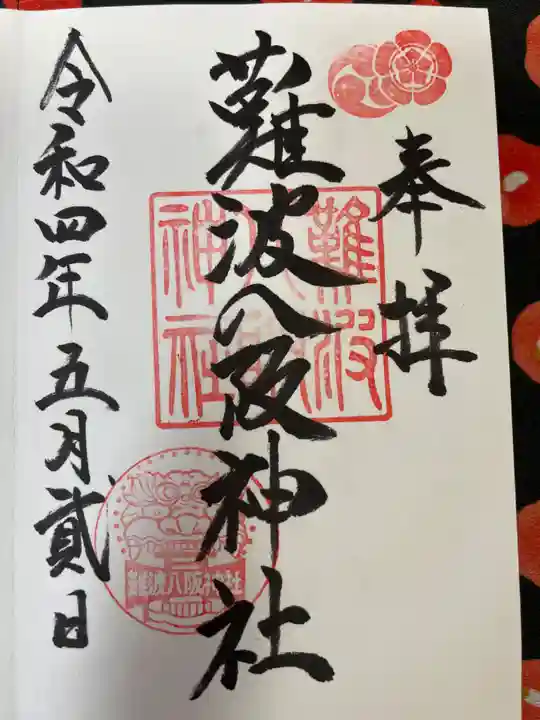 奉拝
難波八阪神社
難波
八阪
神社
難波八阪神社
令和四年五月貳日